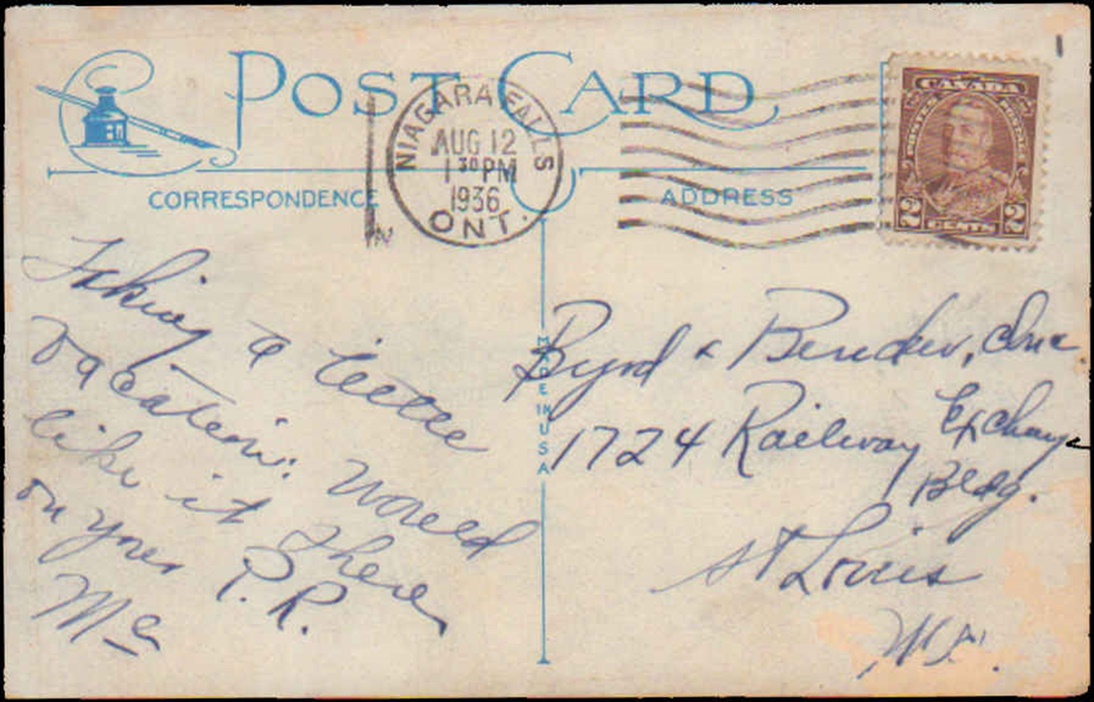 POST CARD
NIAGARA FALLS
AUG 12
1 30 PM
1936
ONT.
CANADA
POSTES POSTAGE
2 CENTS 2
CORRESPONDENCE
ADDRESS
MADE IN USA
Taking a little
vacation. Would
like it there
on your P.R.
Mc
Byrd & Bender, Inc.
1724 Railway Exchange
Bldg.
St Louis
Mo.